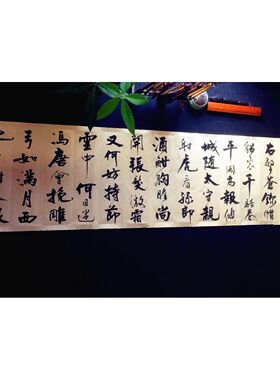 右擎蒼錦帽
貂裘千騎卷
平岡為報傾
城隨太守親
射虎看孫郎
酒酣胸膽尚
開張鬢微霜
又何妨持節
雲中何日遣
馮唐會挽雕
弓如滿月西